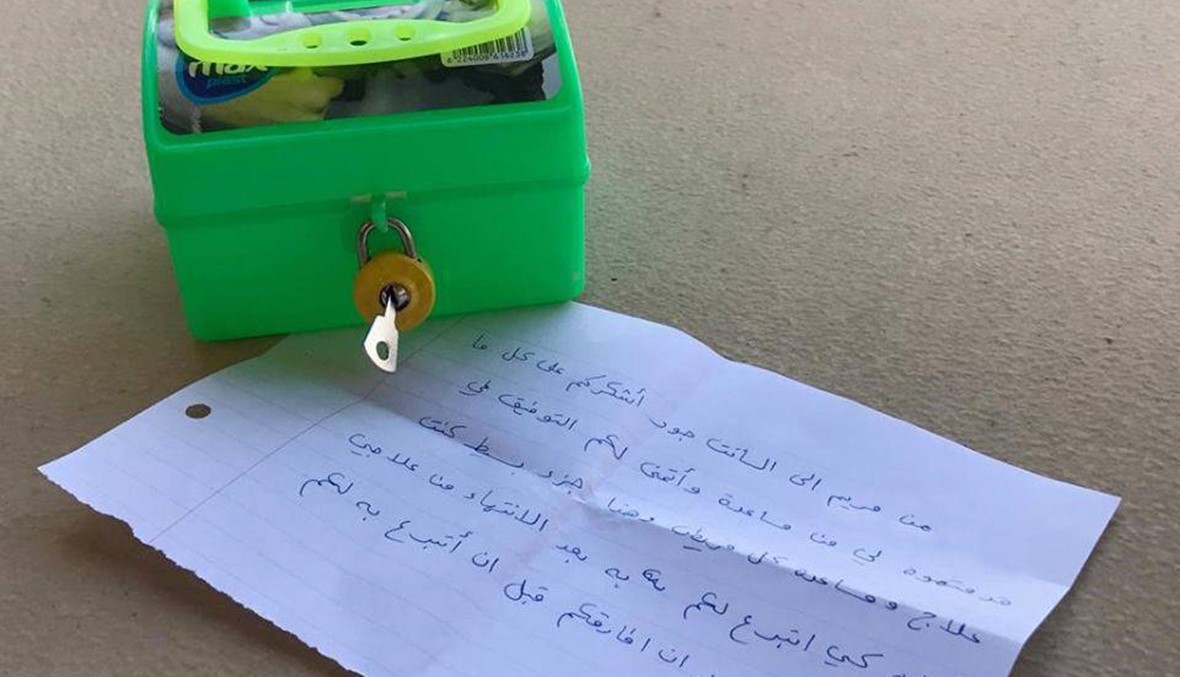 max
plast
من مريم الى السانت جود أشكركم على كل ما
قدمتموه لي من مساعدة وأتمنى لكم التوفيق في
علاج ومساعدة كل مريض وهذا جزء بسيط كنت
كي اتبرع لكم به بعد الانتهاء من علاجي
ان افارقكم قبل ان أتبرع به لكم